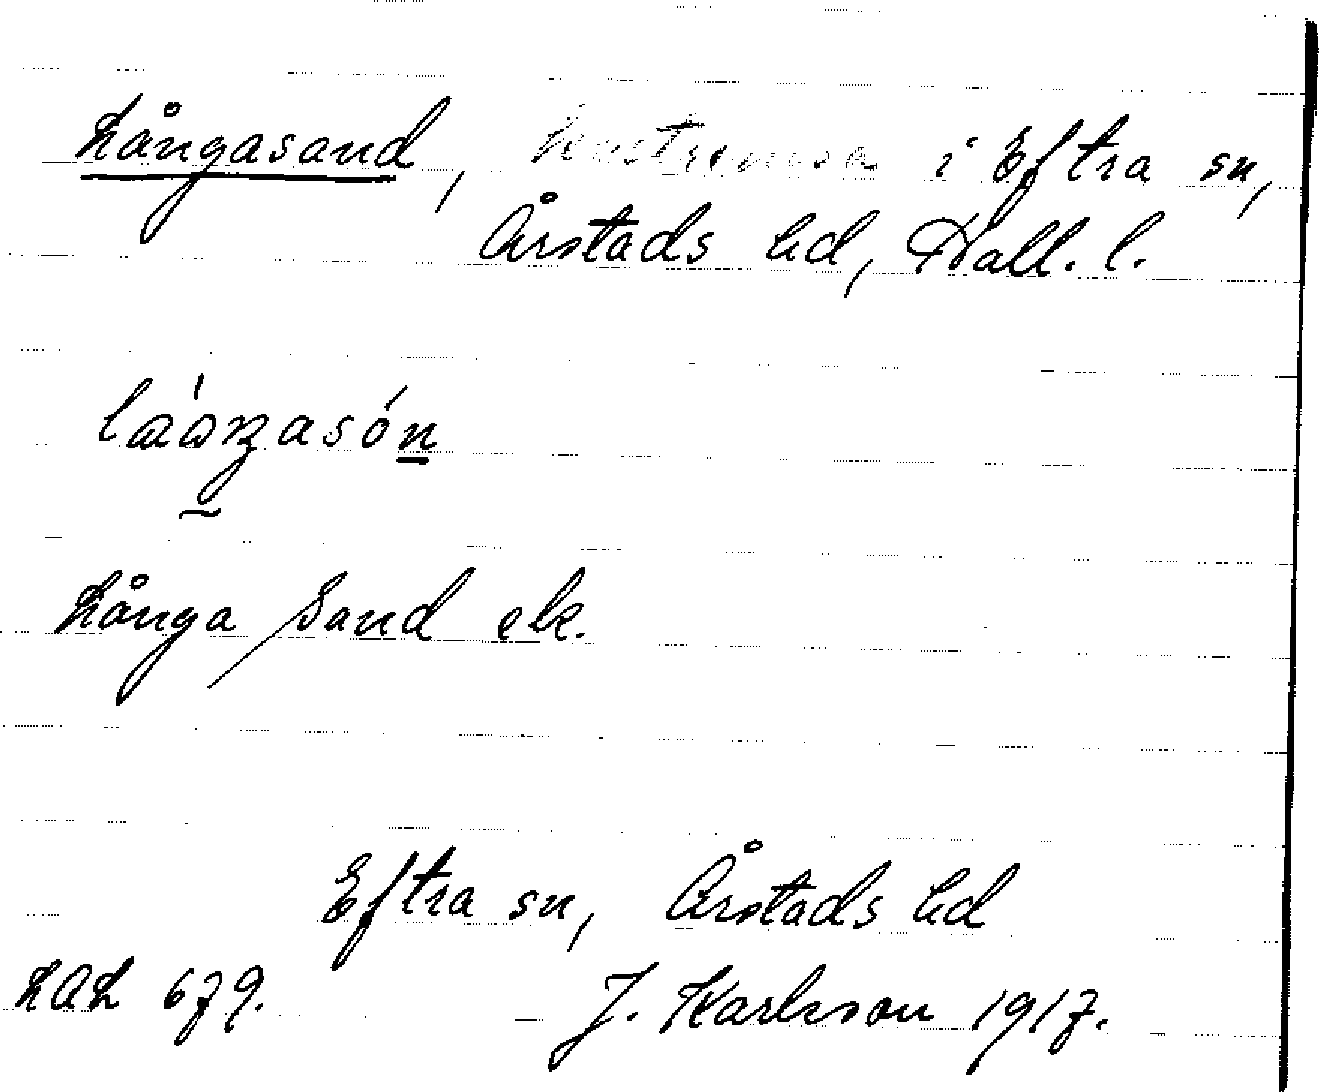 Långasand, kustremsa i Eftra sn,
Årstads hd, Hall. l.
Långa Sand ek.
Eftra sn, Årstads hd
LAL 679. J. Karlsson 1917.